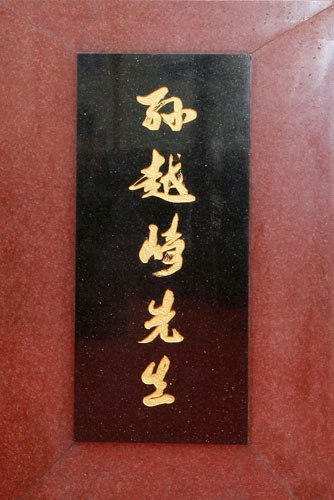 孙越崎先生